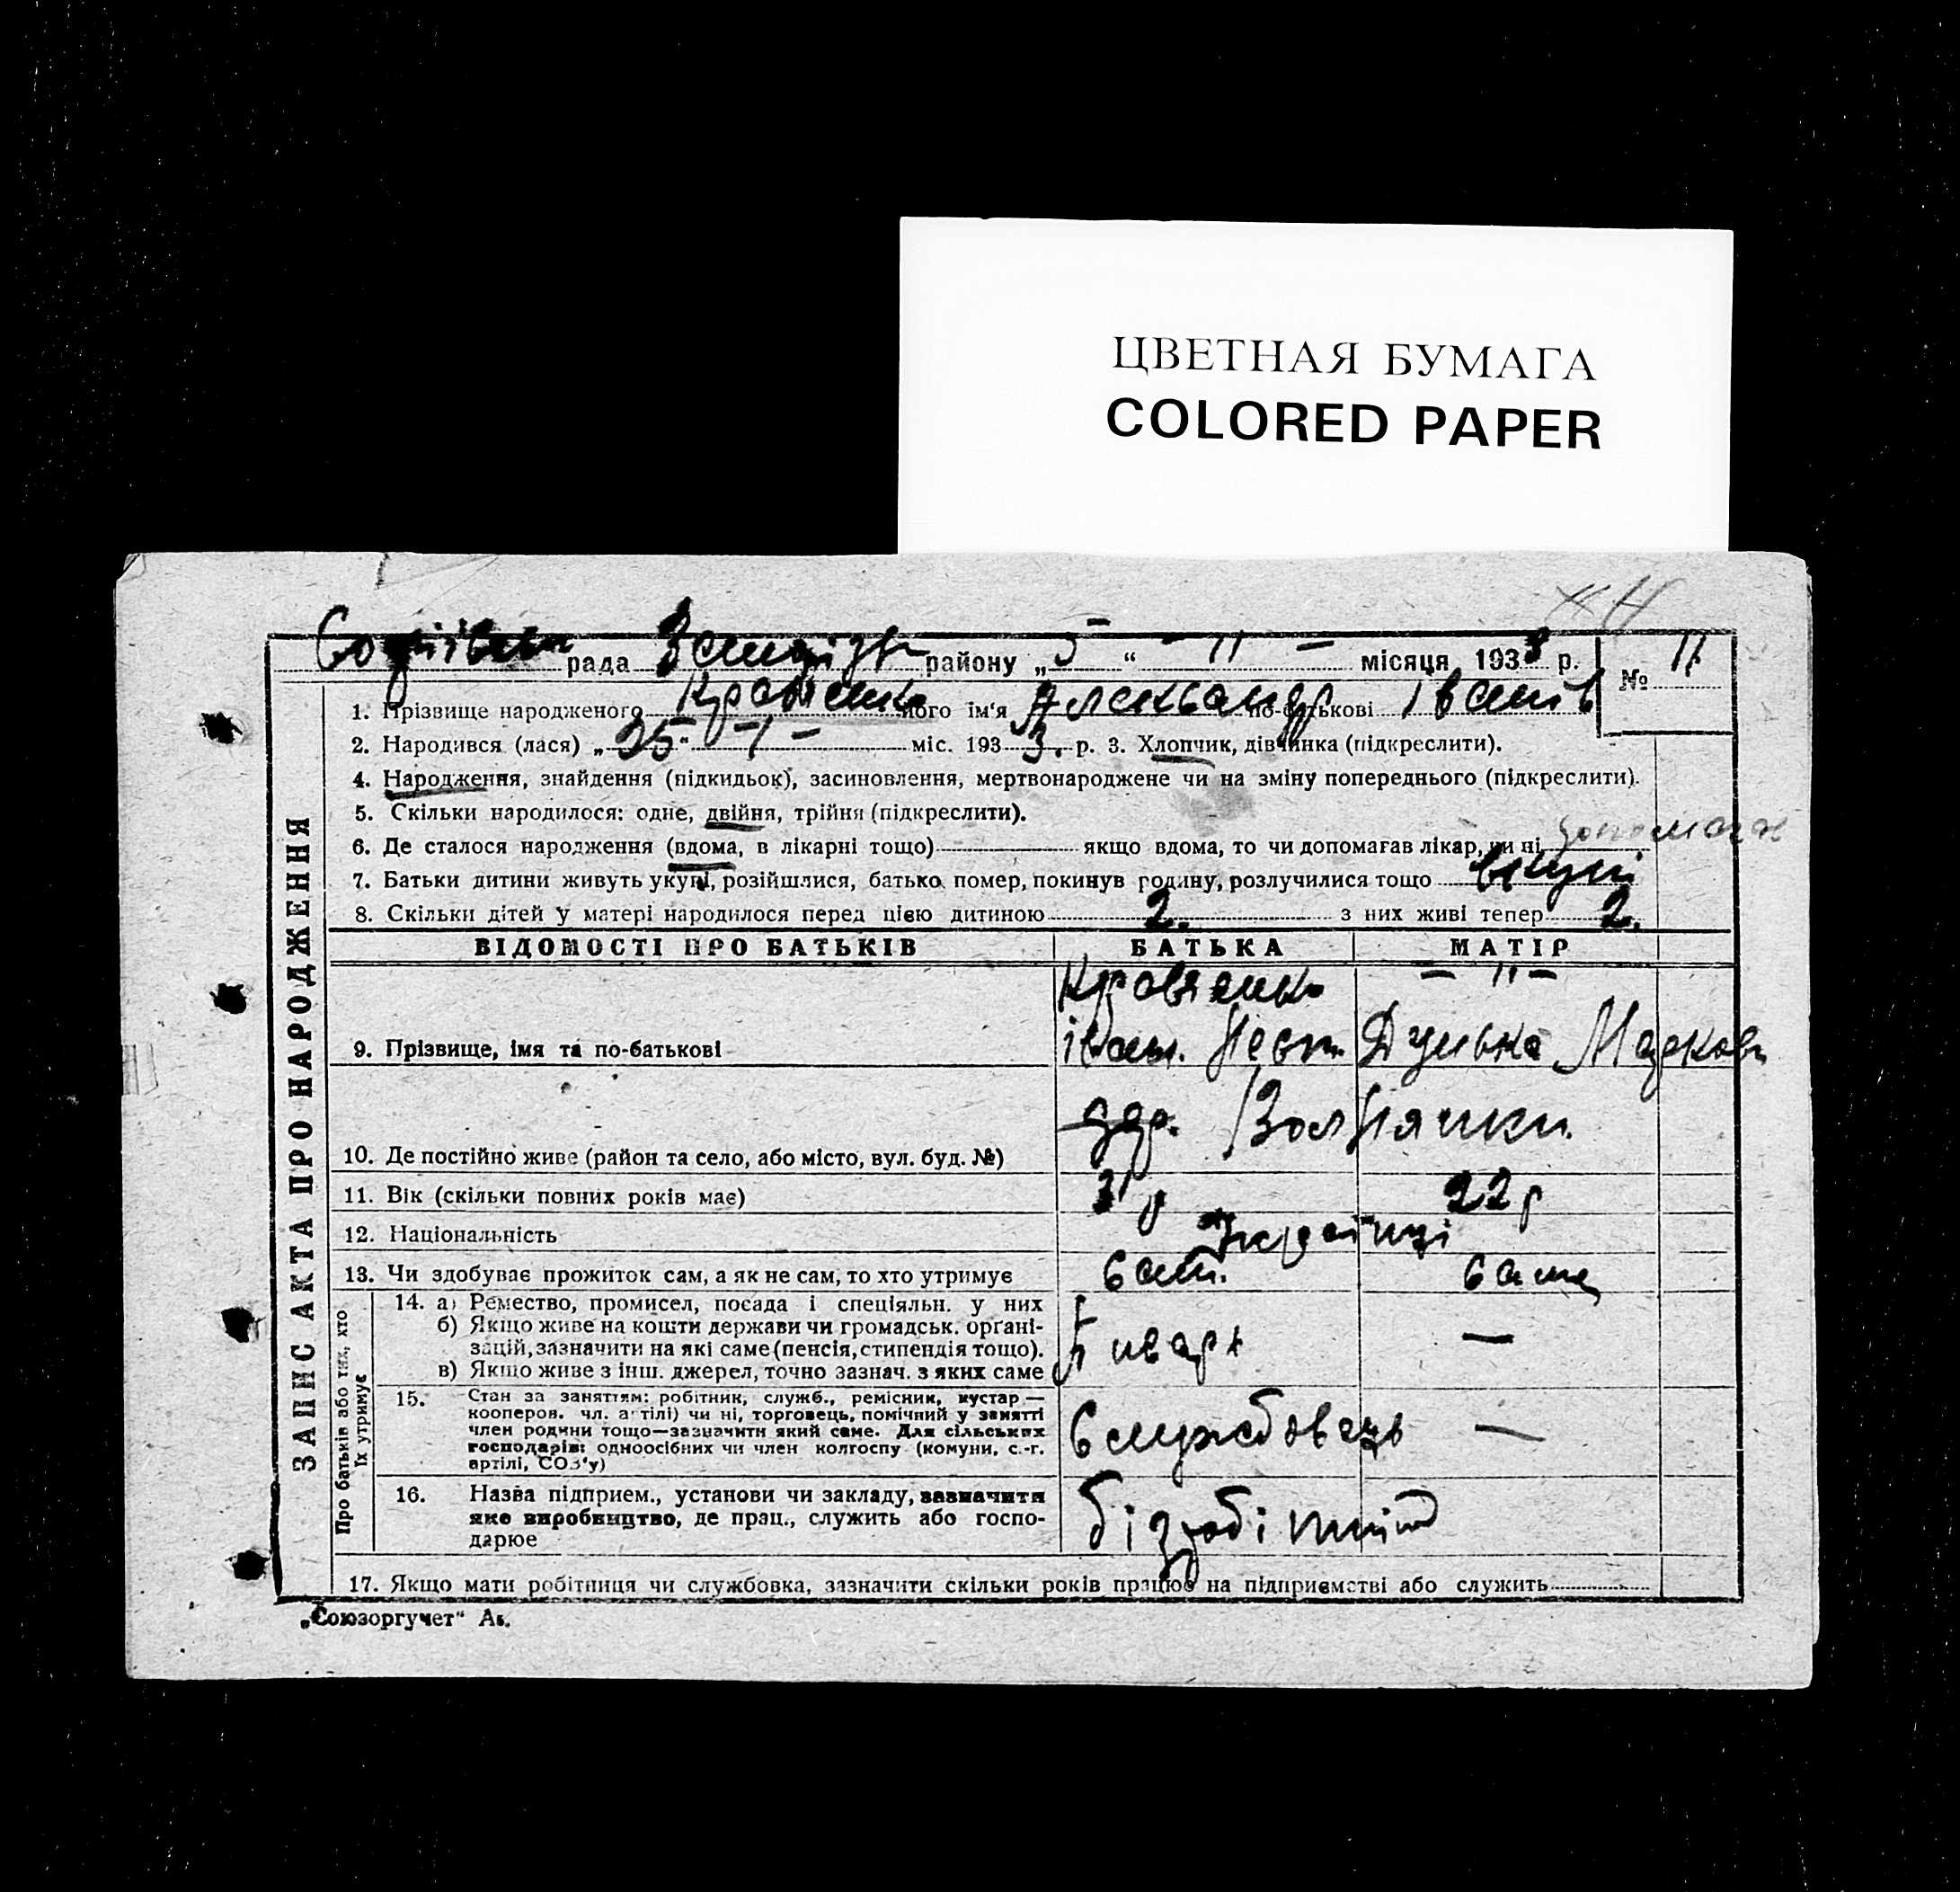 ЦВЕТНАЯ БУМАГА
COLORED PAPER
Софіївськ рада району „5“ - 11 - місяця 1933 р. № 11
1. Прізвище народженого Кравченко його ім'я Александр по-батькові Іванів
2. Народився (лася) „25 - 1 - міс. 1933. р. 3. Хлопчик, дівчинка (підкреслити).
4. Народження, знайдення (підкидьок), засиновлення, мертвонароджене чи на зміну попереднього (підкреслити).
5. Скільки народилося: одне, двійня, трійня (підкреслити).
6. Де сталося народження (вдома, в лікарні тощо) якщо вдома, то чи допомагав лікар, чи ні допомагав
7. Батьки дитини живуть укупі, розійшлися, батько помер, покинув родину, розлучилися тощо вкупі
8. Скільки дітей у матері народилося перед цією дитиною 2. з них живі тепер 2.
ЗАПИС АКТА ПРО НАРОДЖЕННЯ
ВІДОМОСТІ ПРО БАТЬКІВ БАТЬКА МАТІР
Кравченко — " —
9. Прізвище, імя та по-батькові Іван. Марков
10. Де постійно живе (район та село, або місто, вул. буд. №)
11. Вік (скільки повних років має) 31 р 22 р
12. Національність Українці
13. Чи здобуває прожиток сам, а як не сам, то хто утримує сам. сама
Про батьків або тих, хто їх утримує
14. а) Ремество, промисел, посада і спеціяльн. у них
б) Якщо живе на кошти держави чи громадськ. орґані-
зацій, зазначити на які саме (пенсія, стипендія тощо).
в) Якщо живе з інш. джерел, точно зазнач. з яких саме —
15. Стан за заняттям: робітник, служб., ремісник, кустар —
кооперов. чл. артілі) чи ні, торговець, помічний у занятті
член родини тощо—зазначити який саме. Для сільських
господарів: одноосібних чи член колгоспу (комуни, с.-г.
артілі, СОЗ'у) службовець —
16. Назва підприєм., установи чи закладу, зазначити
яке виробництво, де прац., служить або госпо-
дарює
17. Якщо мати робітниця чи службовка, зазначити скільки років працює на підприємстві або служить
„Союзоргучет“